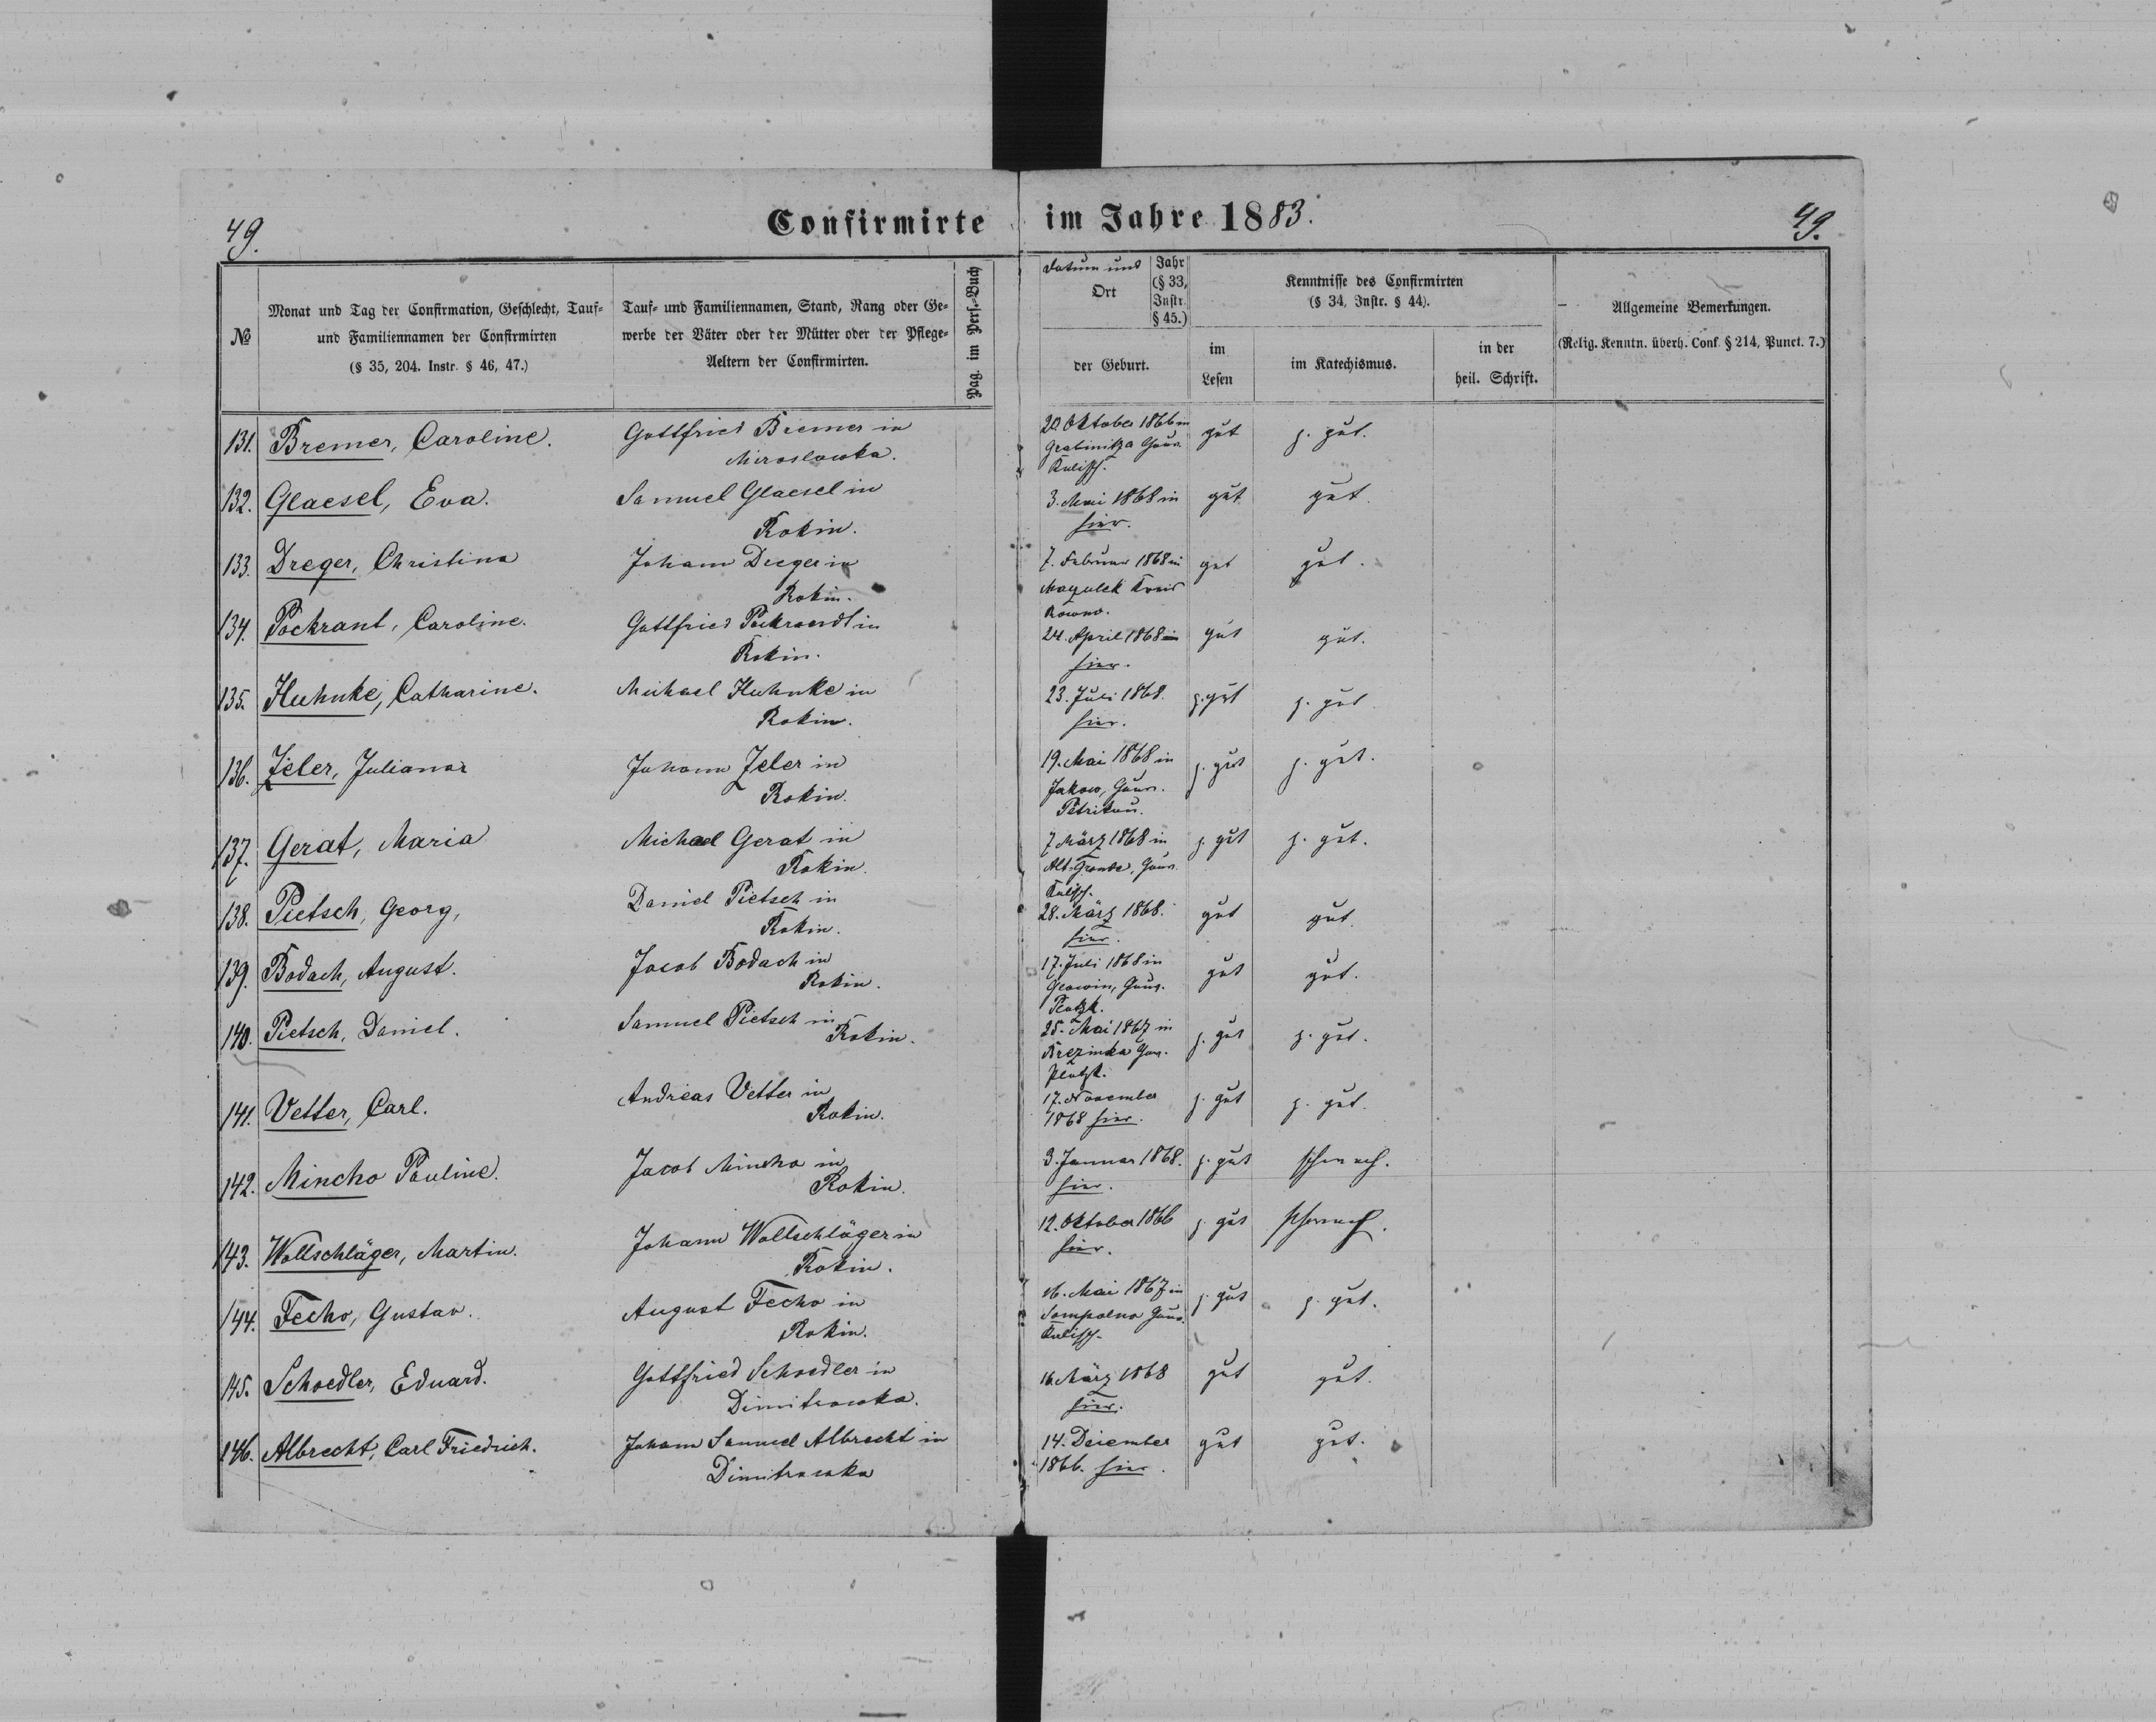 49.
Confirmirte im Jahre 1883.
49.
№
Monat und Tag der Confirmation, Geschlecht, Tauf-
und Familiennamen der Confirmirten
(§ 35, 204. Instr. § 46, 47.)
Tauf- und Familiennamen, Stand, Rang oder Ge-
werbe der Väter oder der Mütter oder der Pflege-
Aeltern der Confirmirten.
Pag. im Pers.-Buch
Datum und
Ort
Jahr
(§ 33,
Instr.
§ 45.)
der Geburt.
Kenntnisse des Confirmirten
(§ 34, Instr. § 44).
im
Lesen
im Katechismus.
in der
heil. Schrift.
Allgemeine Bemerkungen.
(Relig. Kenntn. überh. Conf. § 214, Punct. 7.)
131. Bremer, Caroline.
Gottfried Bremer in
Miroslawka.
20. Oktober 1866 in
Grabinitza Gouv.
Kalisch.
gut
z. gut.
132. Glaesel, Eva.
Samuel Glaesel in
Rokin.
3. Mai 1868 in
hier.
gut
gut.
133. Dreger, Christina
Johann Dreger in
Rokin.
7. Februar 1868 in
Kreis
Rowno.
gut
gut.
134. Pockrant, Caroline.
Gottfried Pockrandt in
Rokin.
24. April 1868 in
hier.
gut
gut.
135. Huhnke, Catharine.
Michael Huhnke in
Rokin.
23. Juli 1868.
hier.
z. gut
z. gut.
136. Zeler, Juliana
Johann Zeler in
Rokin.
19. Mai 1868 in
Jakow, Gouv.
Petrikau.
z. gut
z. gut.
137. Gerat, Maria
Michael Gerat in
Rokin.
7. März 1868 in
Gouv.
Kalisch.
z. gut
z. gut.
138. Pietsch, Georg,
Daniel Pietsch in
Rokin.
28. März 1868.
hier.
gut
gut.
139. Bodach, August.
Jacob Bodach in
Rokin.
17. Juli 1868 in
Gouv.
Plotzk.
gut
gut.
140. Pietsch, Daniel.
Samuel Pietsch in
Rokin.
25. Mai 1867 in
Gouv.
Plotzk.
z. gut
z. gut.
141. Vetter, Carl.
Andreas Vetter in
Rokin.
17. November
1868 hier.
z. gut
z. gut.
142. Mincho Pauline.
Jacob Mincho in
Rokin.
3. Januar 1868.
hier.
z. gut
schwach.
143. Wollschläger, Martin.
Johann Wollschläger in
Rokin.
12. Oktober 1866
hier.
z. gut
schwach.
144. Fecho, Gustav.
August Fecho in
Rokin.
16. Mai 1867 in
Sompolno Gouv.
Kalisch.
z. gut
z. gut.
145. Schoedler, Eduard.
Gottfried Schoedler in
Dimitrowka.
16. März 1868
hier.
gut
gut.
146. Albrecht, Carl Friedrich.
Johann Samuel Albrecht in
Dimitrowka
14. Deiember
1866. hier.
gut
gut.